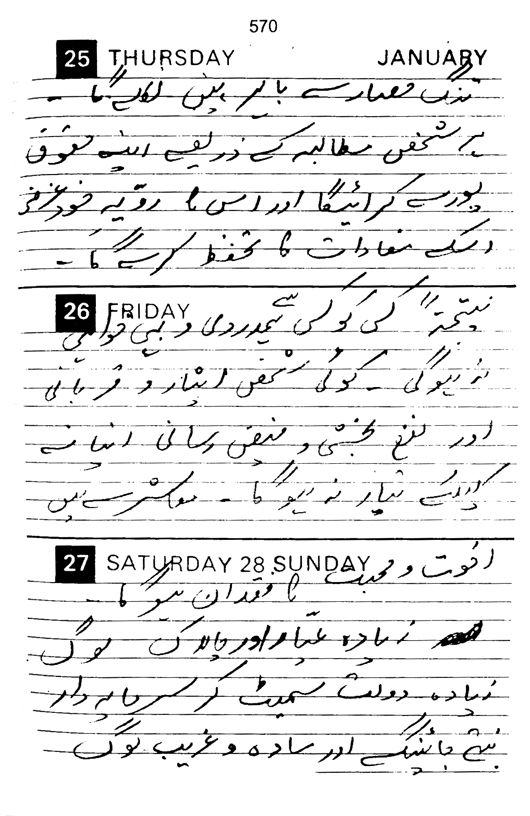 570
25 THURSDAY JANUARY
تنگ حصار سے باہر نہیں نکالے گا۔
ہر شخص مطالبہ کے ذریعے اپنے حقوق
پورے کرائیگا اور اس کا رویہ خودغرضی
اسکے مفادات کا تحفظ کرے گا۔
26 FRIDAY
نتیجۃً کسی کو کسی سے ہمدردی و
نہ ہوگی۔ کوئی شخص ایثار و قربانی
اور نفع بخشی و فیض رسانی اپنانے
کیلئے تیار نہ ہو گا۔ معاشرے میں
27 SATURDAY 28 SUNDAY
اخوت و محبت کا فقدان ہو گا۔
زیادہ عیار اور چالاک لوگ
زیادہ دولت سمیٹ کر سرمایہ دار
بنتے جائینگے اور سادہ و غریب لوگ